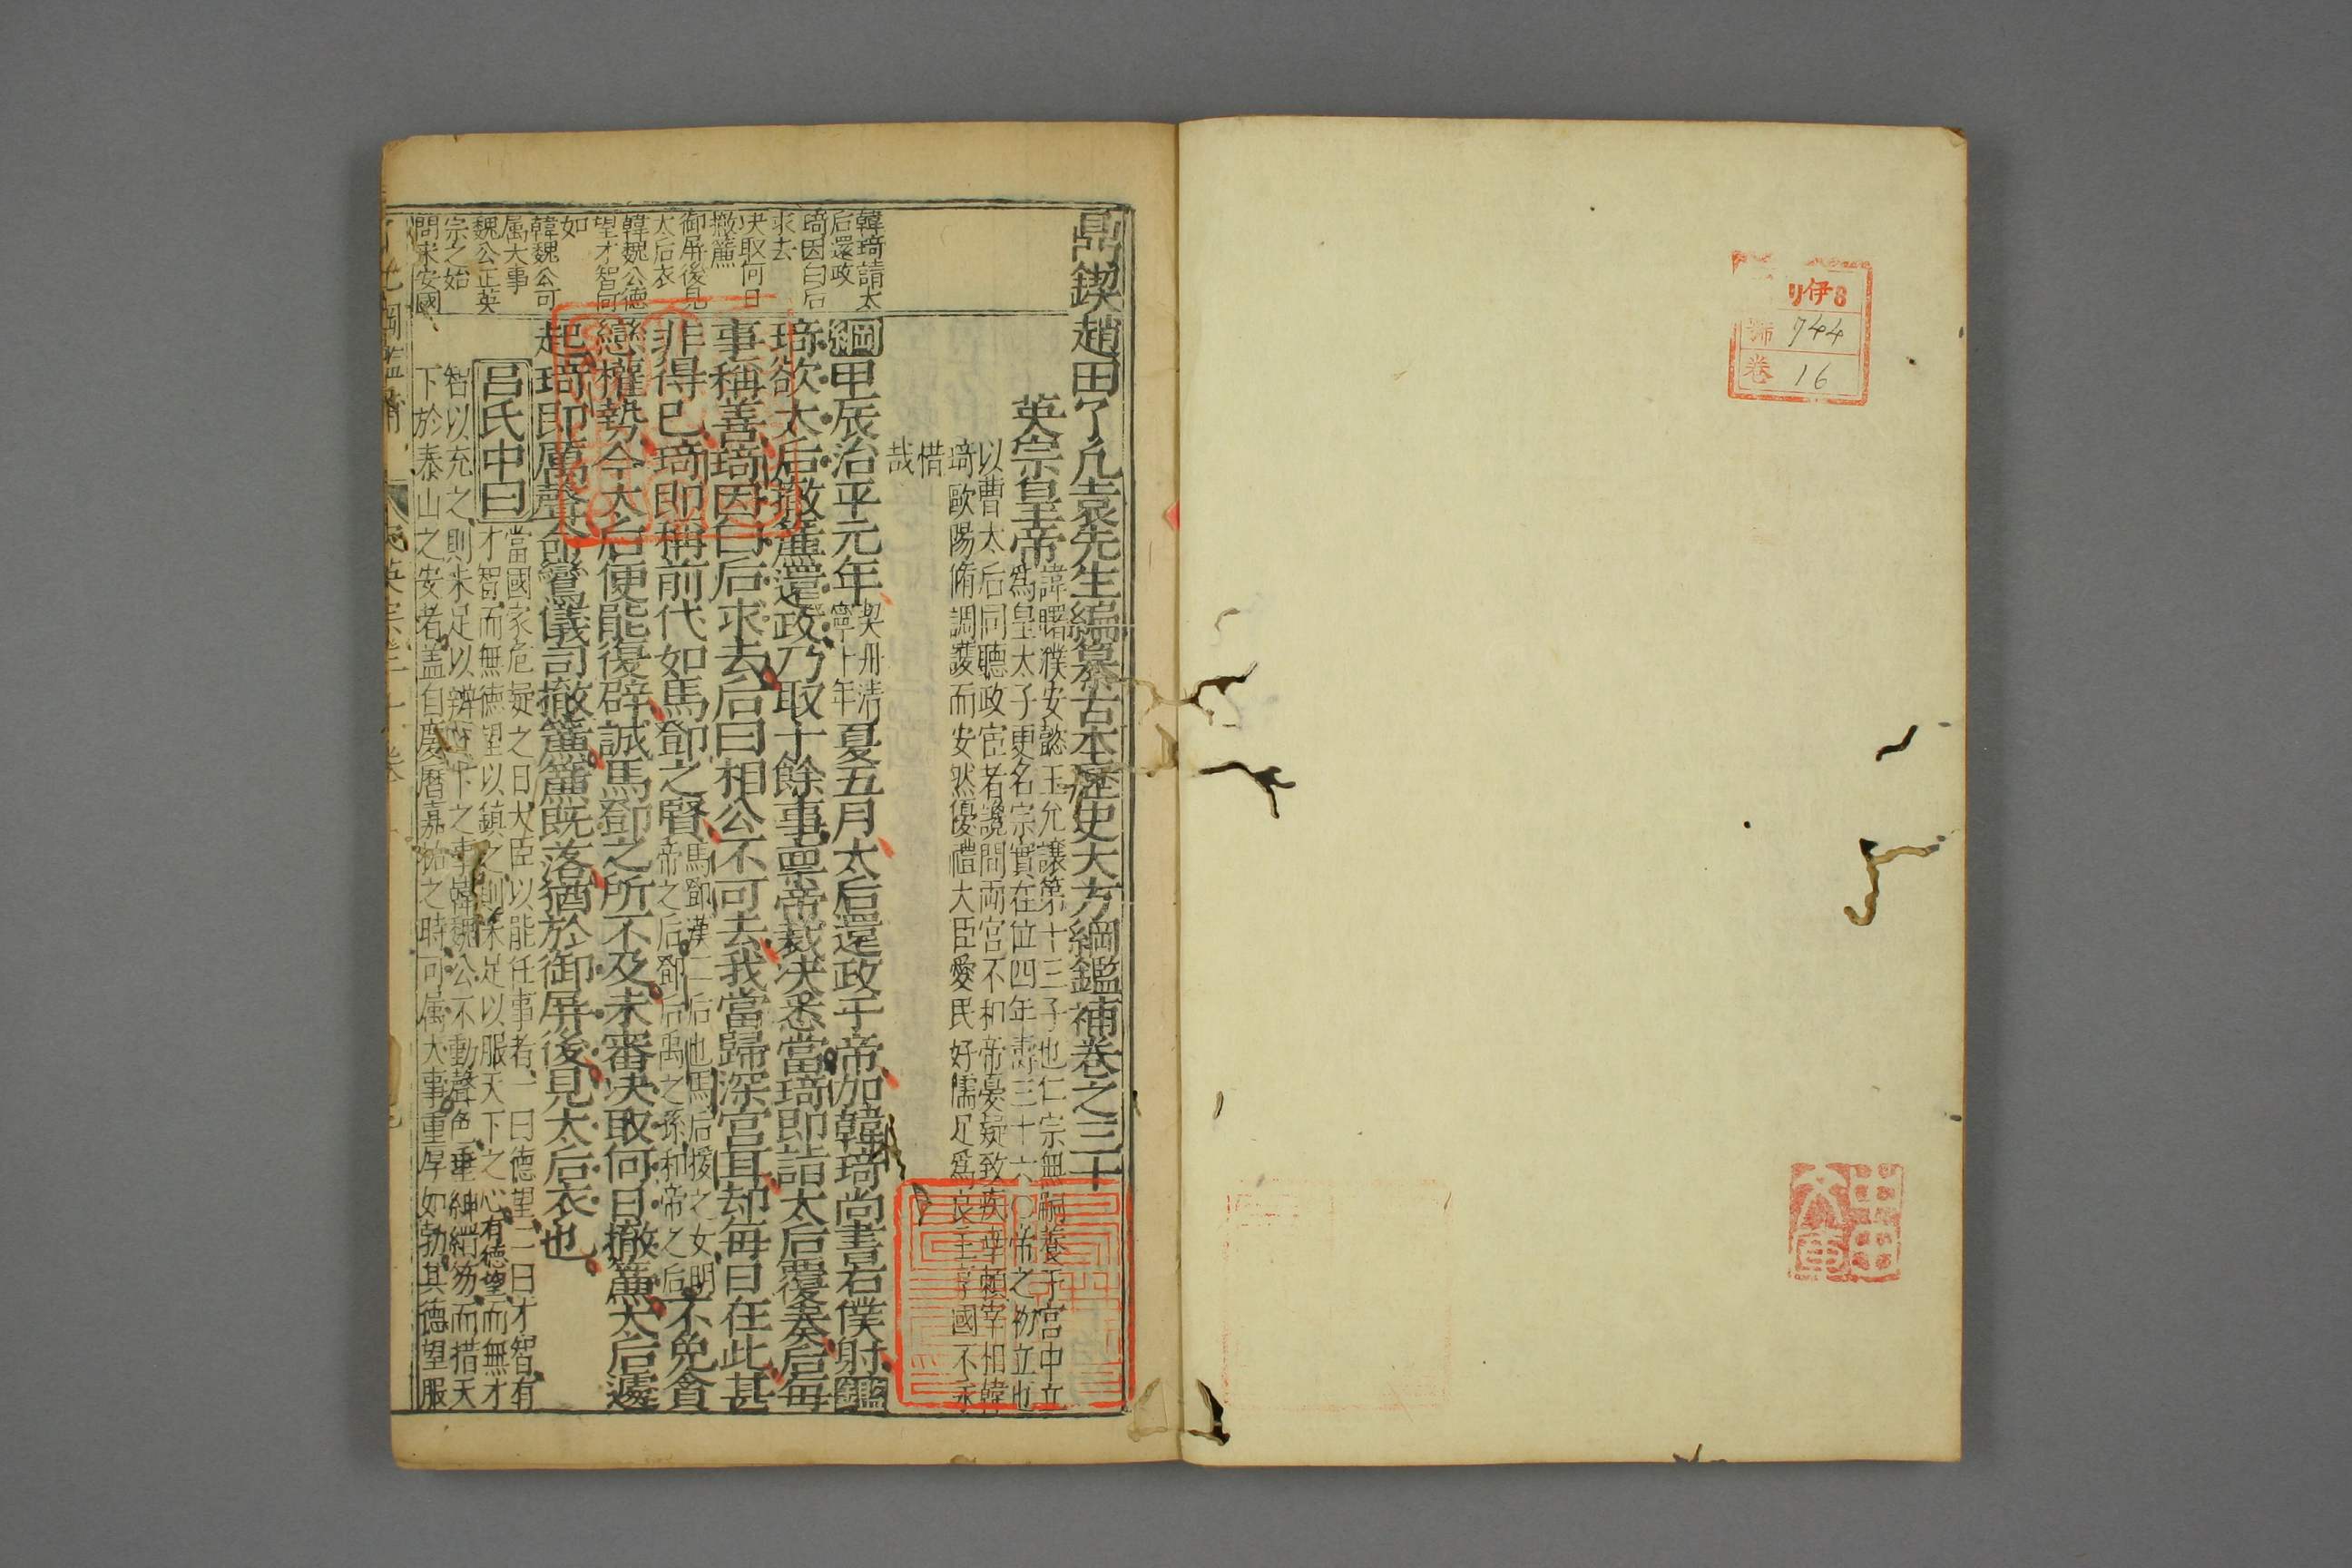 伊8
號 744
卷 16
鼎鍥趙田了凡袁先生編纂古本歷史大方綱鑑補卷之三十
英宗皇帝
諱曙濮安懿王允讓第十三子也仁宗無嗣養于宮中立
爲皇太子更名宗實在位四年壽三十六〇帝之初立也
以曹太后同聽政宦者讒間兩宮不和帝憂疑致疾幸賴宰相韓
琦歐陽脩調護而安然優禮大臣愛民好儒足爲良主享國不永
惜
哉
綱甲辰治平元年契丹清寧十年夏五月太后還政于帝加韓琦尚書右僕射鑑
琦欲太后撤簾還政乃取十餘事稟帝裁决悉當琦即詣太后覆奏后每
事稱善琦因白后求去后曰相公不可去我當歸深宮耳却每日在此甚
非得已琦即稱前代如馬鄧之賢馬鄧漢二后也馬后援之女明帝之后鄧后禹之孫和帝之后不免貪
戀權勢今太后便能復辟誠馬鄧之所不及未審决取何日撤簾太后遽
起琦即厲聲命鸞儀司撤簾簾既落猶於御屏後見太后衣也
呂氏中曰
當國家危疑之日大臣以能任事者一曰德望二曰才智有
才智而無德望以鎮之則未足以服天下之心有德望而無才
智以充之則未足以辨天下之事韓魏公不動聲色垂紳縉笏而措天
下於泰山之安者盖自慶曆嘉祐之時可属大事重厚如勃其德望服
韓琦請太
后還政
琦因白后
求去
决取何日
撤簾
御屏後見
太后衣
韓魏公德
望才智何
如
韓魏公可
属大事
魏公正英
宗之始
問宋安國